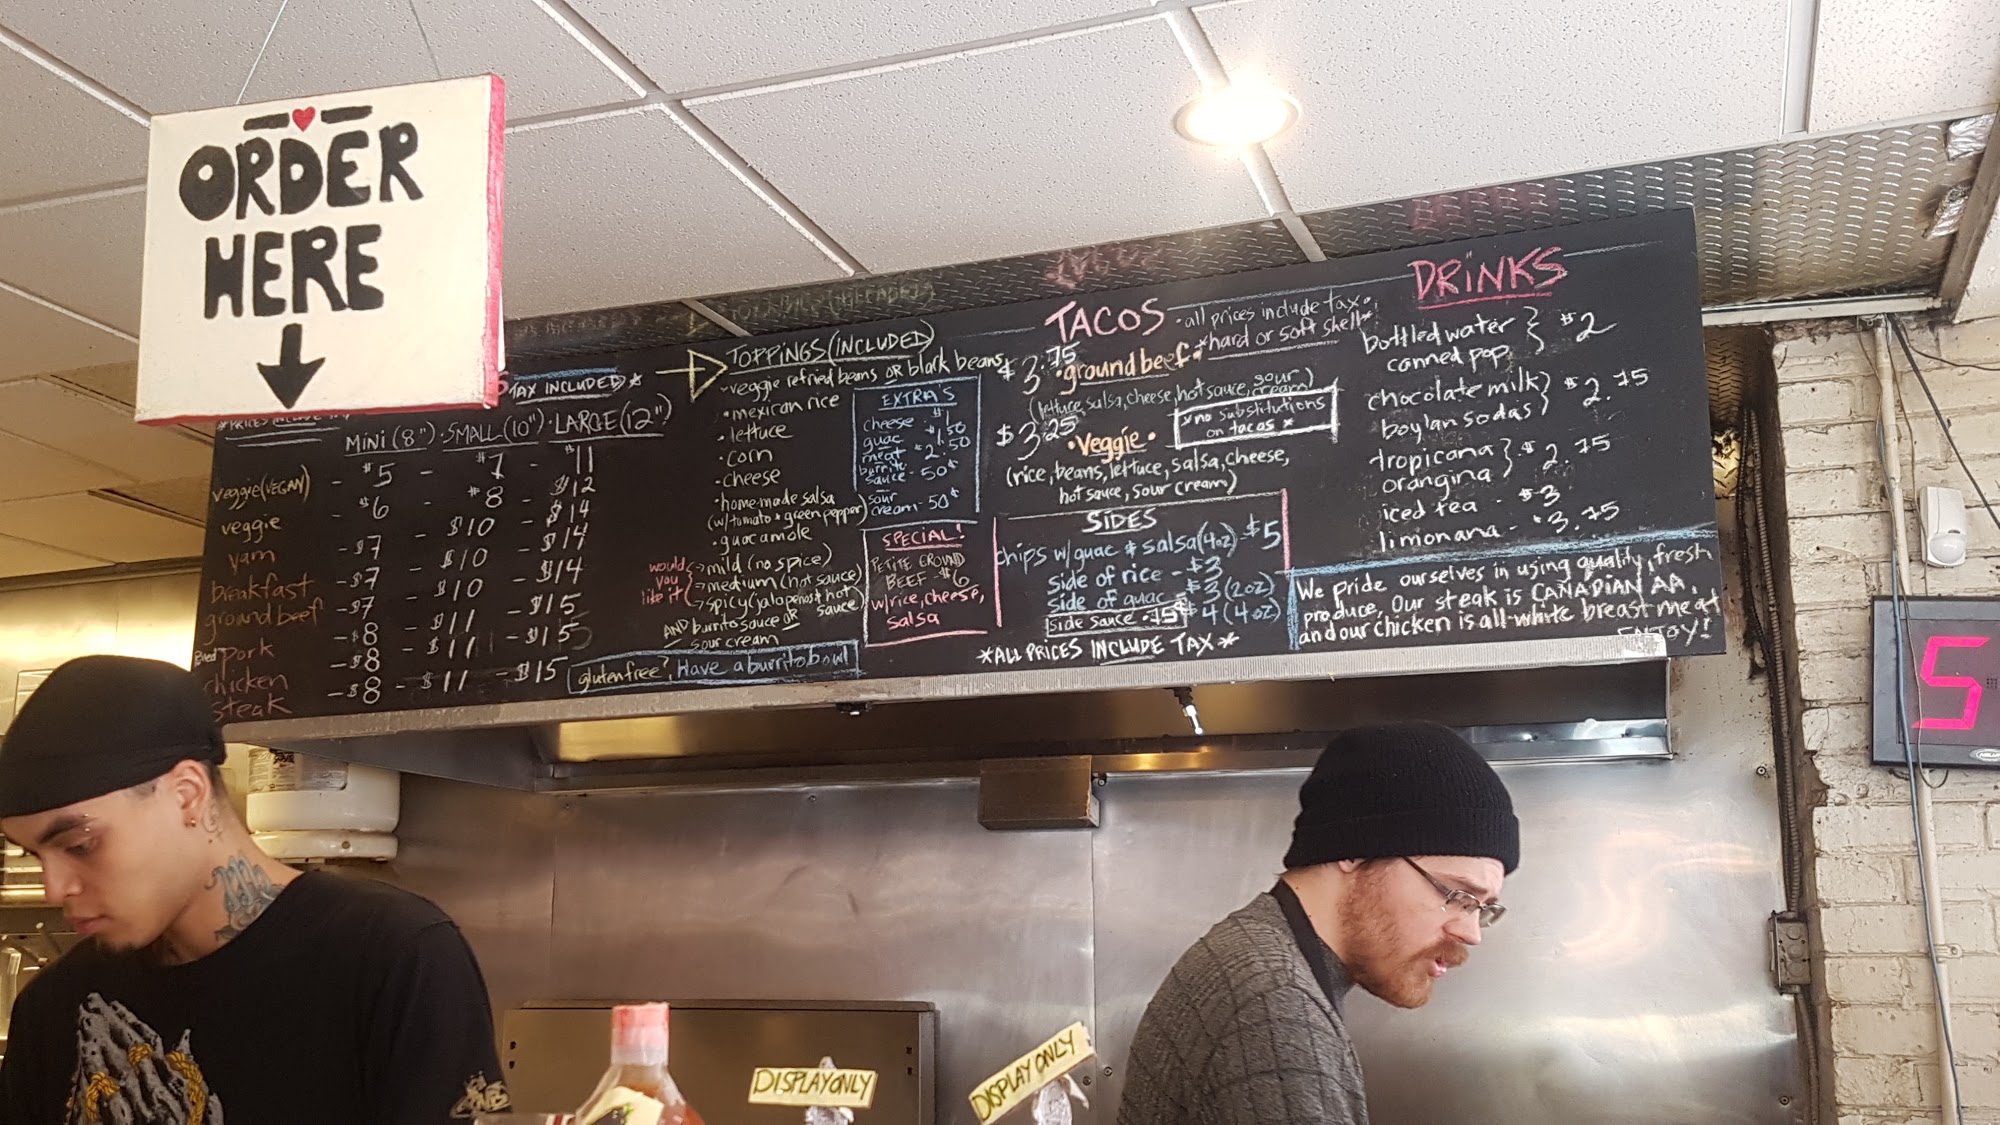 ORDER
HERE
*PRICES INCLUDE
TAX INCLUDED*
MINI (8") · SMALL (10") · LARGE (12")
veggie (VEGAN) - $5 - $7 - $11
veggie - $6 - $8 - $12
yam - $7 - $10 - $14
breakfast - $7 - $10 - $14
ground beef - $7 - $10 - $14
pork - $8 - $11 - $15
chicken - $8 - $11 - $15
steak - $8 - $11 - $15
TOPPINGS (INCLUDED)
·veggie refried beans OR black beans
·mexican rice
·lettuce
·corn
·cheese
·homemade salsa
(w/tomato & green pepper)
·guacamole
would you like it
→mild (no spice)
→medium (hot sauce)
→spicy (jalapenos & hot sauce)
AND burrito sauce OR
sour cream
gluten free? Have a burrito bowl
EXTRA'S
cheese $1.50
guac $1.50
meat $2.50
burrito sauce - 50¢
sour cream - 50¢
SPECIAL!
PETITE GROUND
BEEF - $6
w/rice, cheese,
salsa
TACOS
·all prices include tax·
*hard or soft shell*
$3.75 ·ground beef·
(lettuce, salsa, cheese, hot sauce, sour cream)
*no substitutions
on tacos*
$3.25 ·Veggie·
(rice, beans, lettuce, salsa, cheese,
hot sauce, sour cream)
SIDES
chips w/guac & salsa (4oz) - $5
side of rice - $3
side of guac - $3 (2oz)
$4 (4oz)
side sauce · 75¢
*ALL PRICES INCLUDE TAX*
DRINKS
bottled water
canned pop } $2
chocolate milk
boylan sodas } $2.75
tropicana
orangina } $2.75
iced tea - $3
limonana - $3.75
We pride ourselves in using quality, fresh
produce, Our steak is CANADIAN AA,
and our chicken is all-white breast meat
ENJOY!
5
DISPLAY ONLY
DISPLAY ONLY